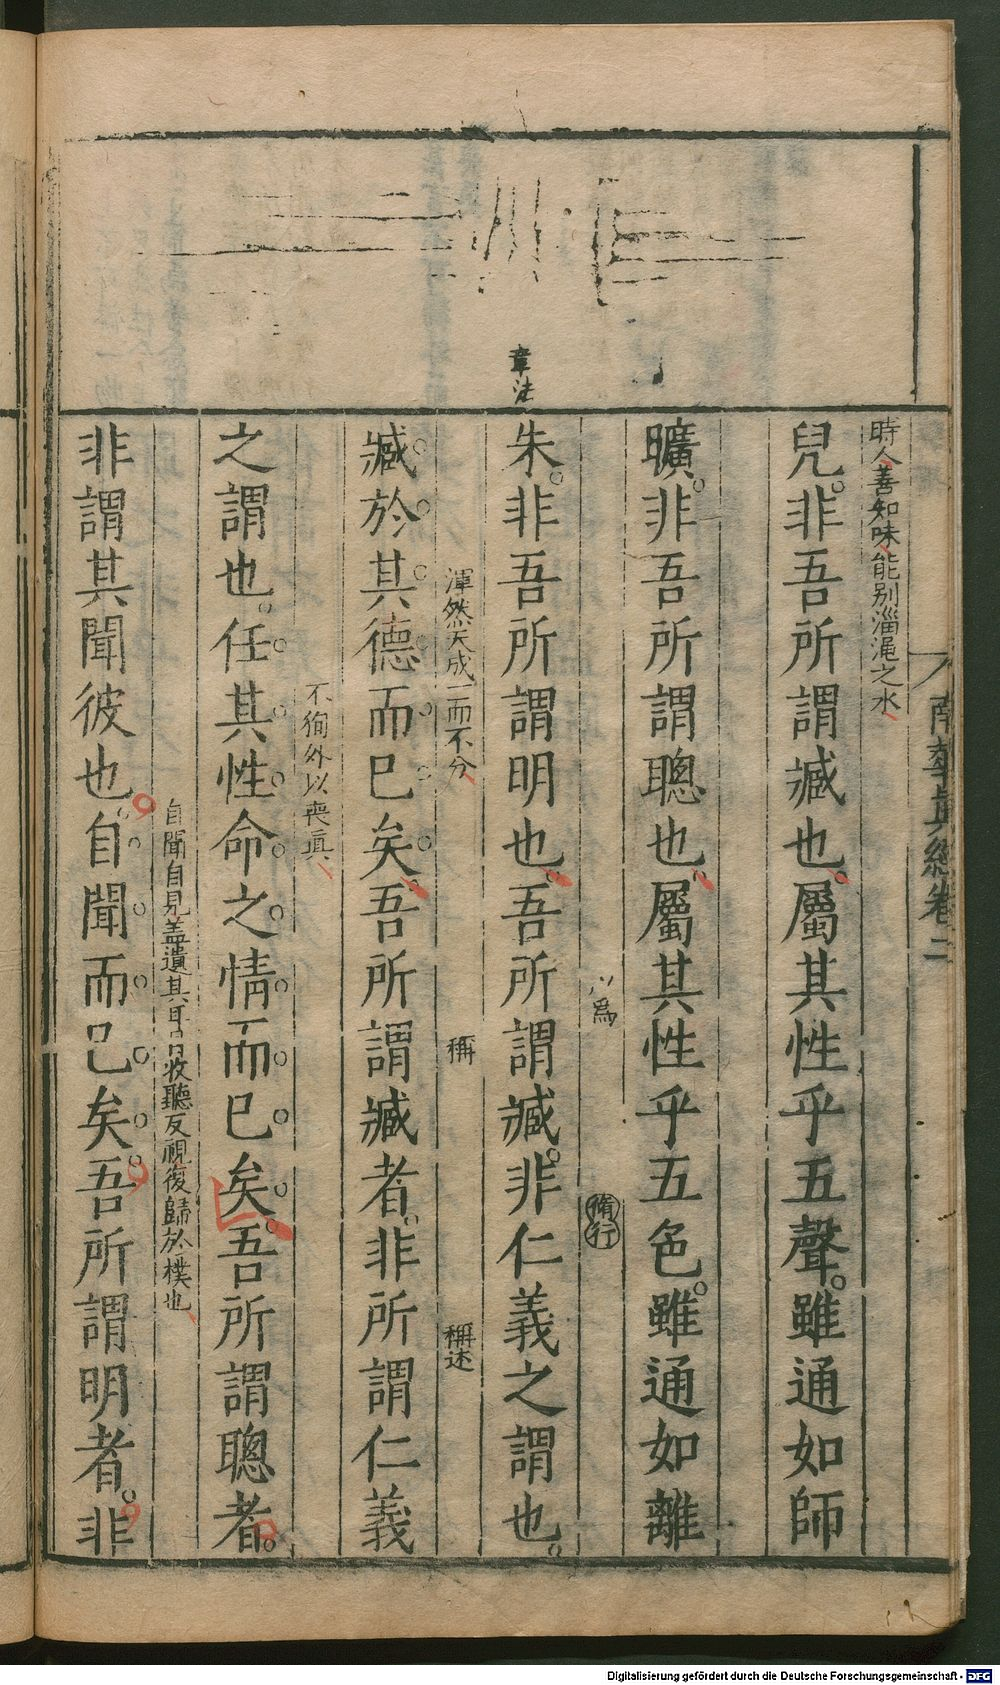 南華眞經卷二
時人善知味能别淄澠之水
兒非吾所謂臧也屬其性乎五聲雖通如師
曠非吾所謂聰也屬其性乎五色雖通如離
八爲
脩行
章法
朱非吾所謂明也吾所謂臧非仁義之謂也
渾然天成一而不分
稱
稱述
臧於其德而已矣吾所謂臧者非所謂仁義
不徇外以喪眞
之謂也任其性命之情而已矣吾所謂聰者
自聞自見盖遺其耳目收聽反視復歸於樸也
非謂其聞彼也自聞而已矣吾所謂明者非
Digitalisierung gefördert durch die Deutsche Forschungsgemeinschaft - DFG